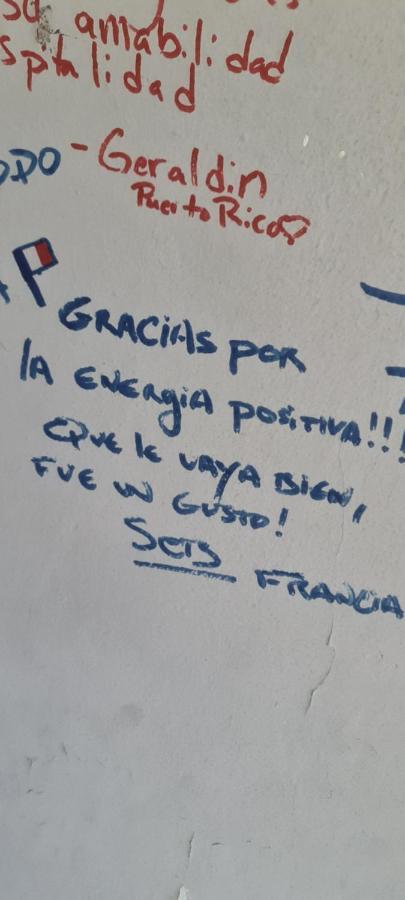 su amabilidad
spitalidad
- Geraldin
Puerto Rico
GRACIAS POR
LA ENERGIA POSITIVA!!!
QUE le VAYA BIEN,
FUE UN GUSTO!
FRANCIA